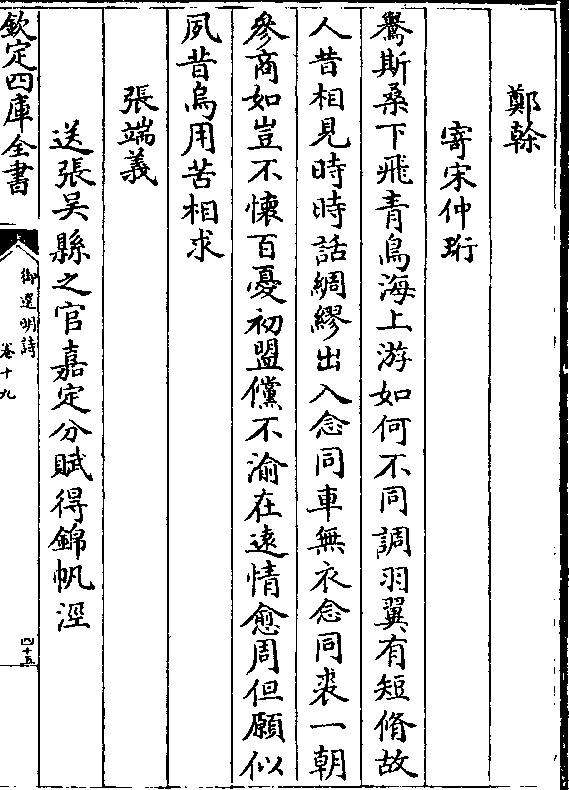 鄭榦
寄宋仲珩
鷽斯桑下飛青鳥海上游如何不同調羽翼有短脩故
人昔相見時時話綢繆出入念同車無衣念同裘一朝
參商如豈不懷百憂初盟儻不渝在遠情愈周但願似
夙昔烏用苦相求
張端義
送張吴縣之官嘉定分賦得錦帆涇
欽定四庫全書
御選明詩
卷十九
四十五